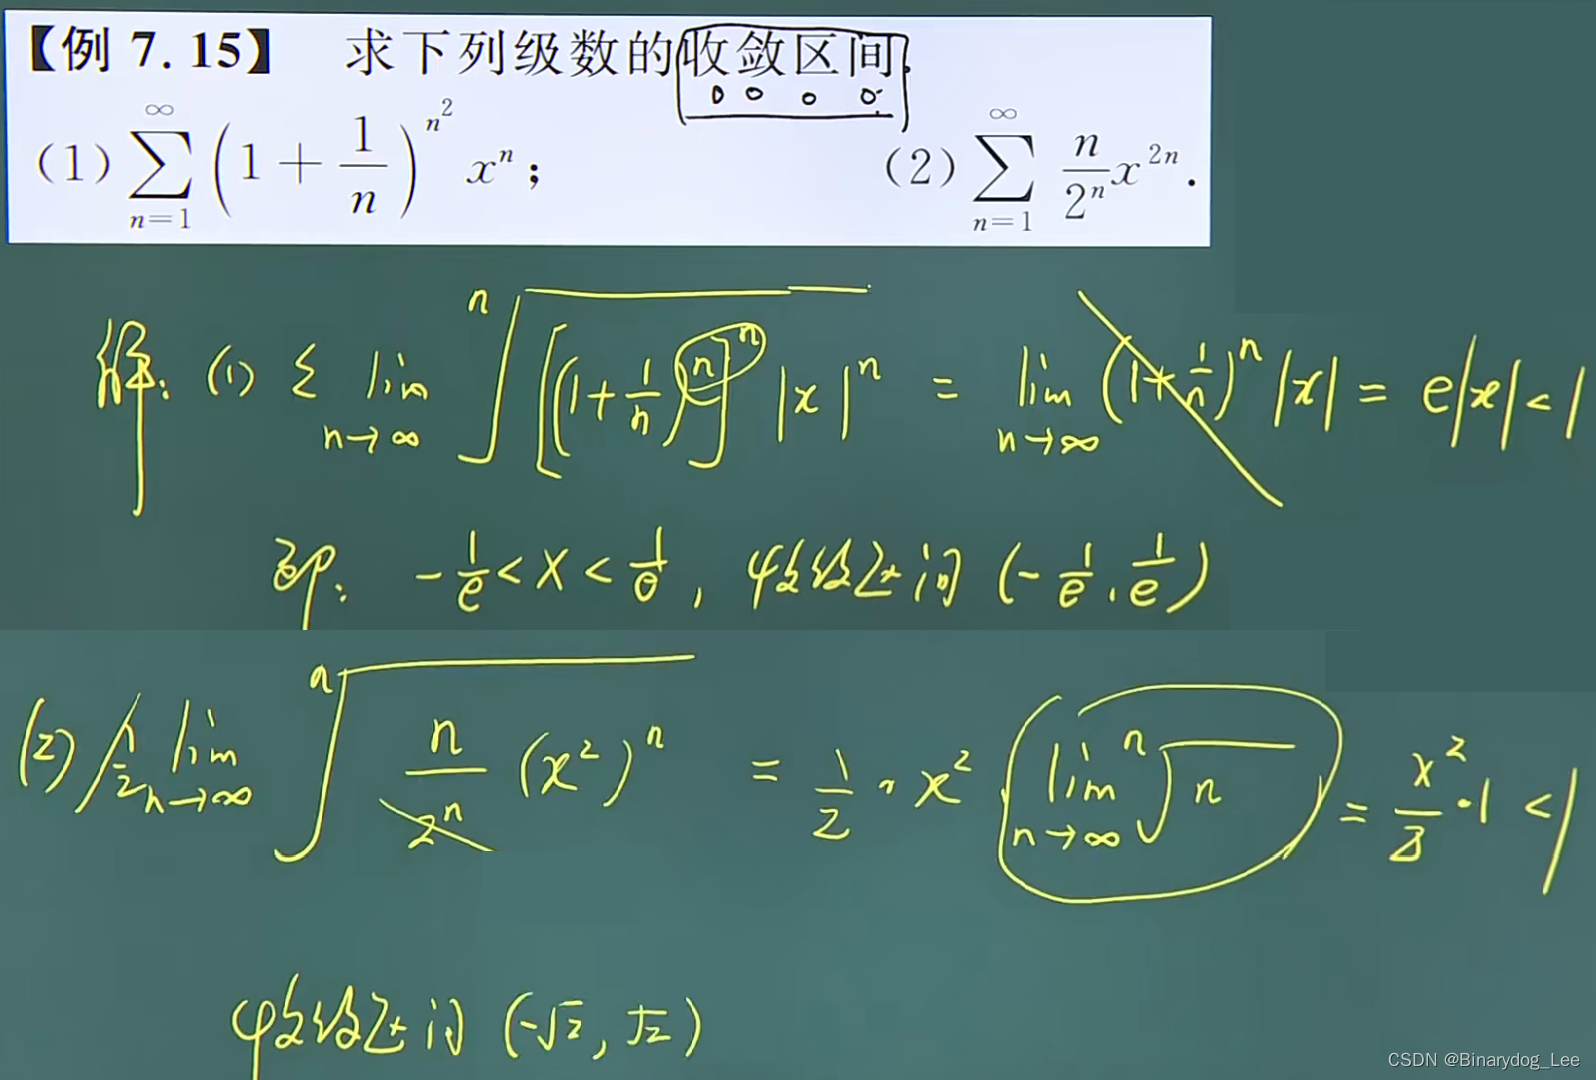 【例 7.15】 求下列级数的收敛区间.
(1) \sum_{n=1}^{\infty} \left(1+\frac{1}{n}\right)^{n^2} x^n;  (2) \sum_{n=1}^{\infty} \frac{n}{2^n} x^{2n}.
解: (1) \lim_{n→∞} \sqrt[n]{\left[\left(1+\frac{1}{n}\right)^n\right]^n |x|^n} = \lim_{n→∞} \left(1+\frac{1}{n}\right)^n |x| = e|x| < 1
即: -\frac{1}{e} < x < \frac{1}{e}, 收敛区间 (-\frac{1}{e}, \frac{1}{e})
(2) \lim_{n→∞} \sqrt[n]{\frac{n}{2^n} (x^2)^n} = \frac{1}{2} · x^2 \lim_{n→∞} \sqrt[n]{n} = \frac{x^2}{2} · 1 < 1
收敛区间 (-\sqrt{2}, \sqrt{2})
CSDN @Binarydog_Lee